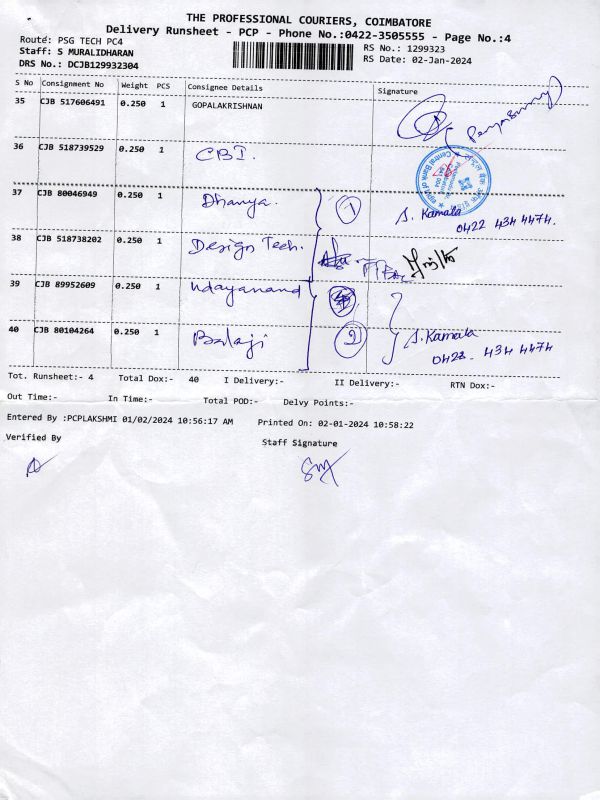 THE PROFESSIONAL COURIERS, COIMBATORE
Delivery Runsheet - PCP - Phone No.:0422-3505555 - Page No.:4
Route: PSG TECH PC4
Staff: S MURALIDHARAN
DRS No.: DCJB129932304
RS No.: 1299323
RS Date: 02-Jan-2024
S No Consignment No Weight PCS Consignee Details Signature
35 CJB 517606491 0.250 1 GOPALAKRISHNAN
36 CJB 518739529 0.250 1 CBI.
37 CJB 80046949 0.250 1 Dhanya. 1 S. Kamala
0422 434 4474.
38 CJB 518738202 0.250 1 Design Tech.
39 CJB 89952609 0.250 1 Udayanand
40 CJB 80104264 0.250 1 Balaji 2 S. Kamala
0422 - 434 4474
Tot. Runsheet:- 4 Total Dox:- 40 I Delivery:- II Delivery:- RTN Dox:-
Out Time:- In Time:- Total POD:- Delvy Points:-
Entered By :PCPLAKSHMI 01/02/2024 10:56:17 AM Printed On: 02-01-2024 10:58:22
Verified By Staff Signature